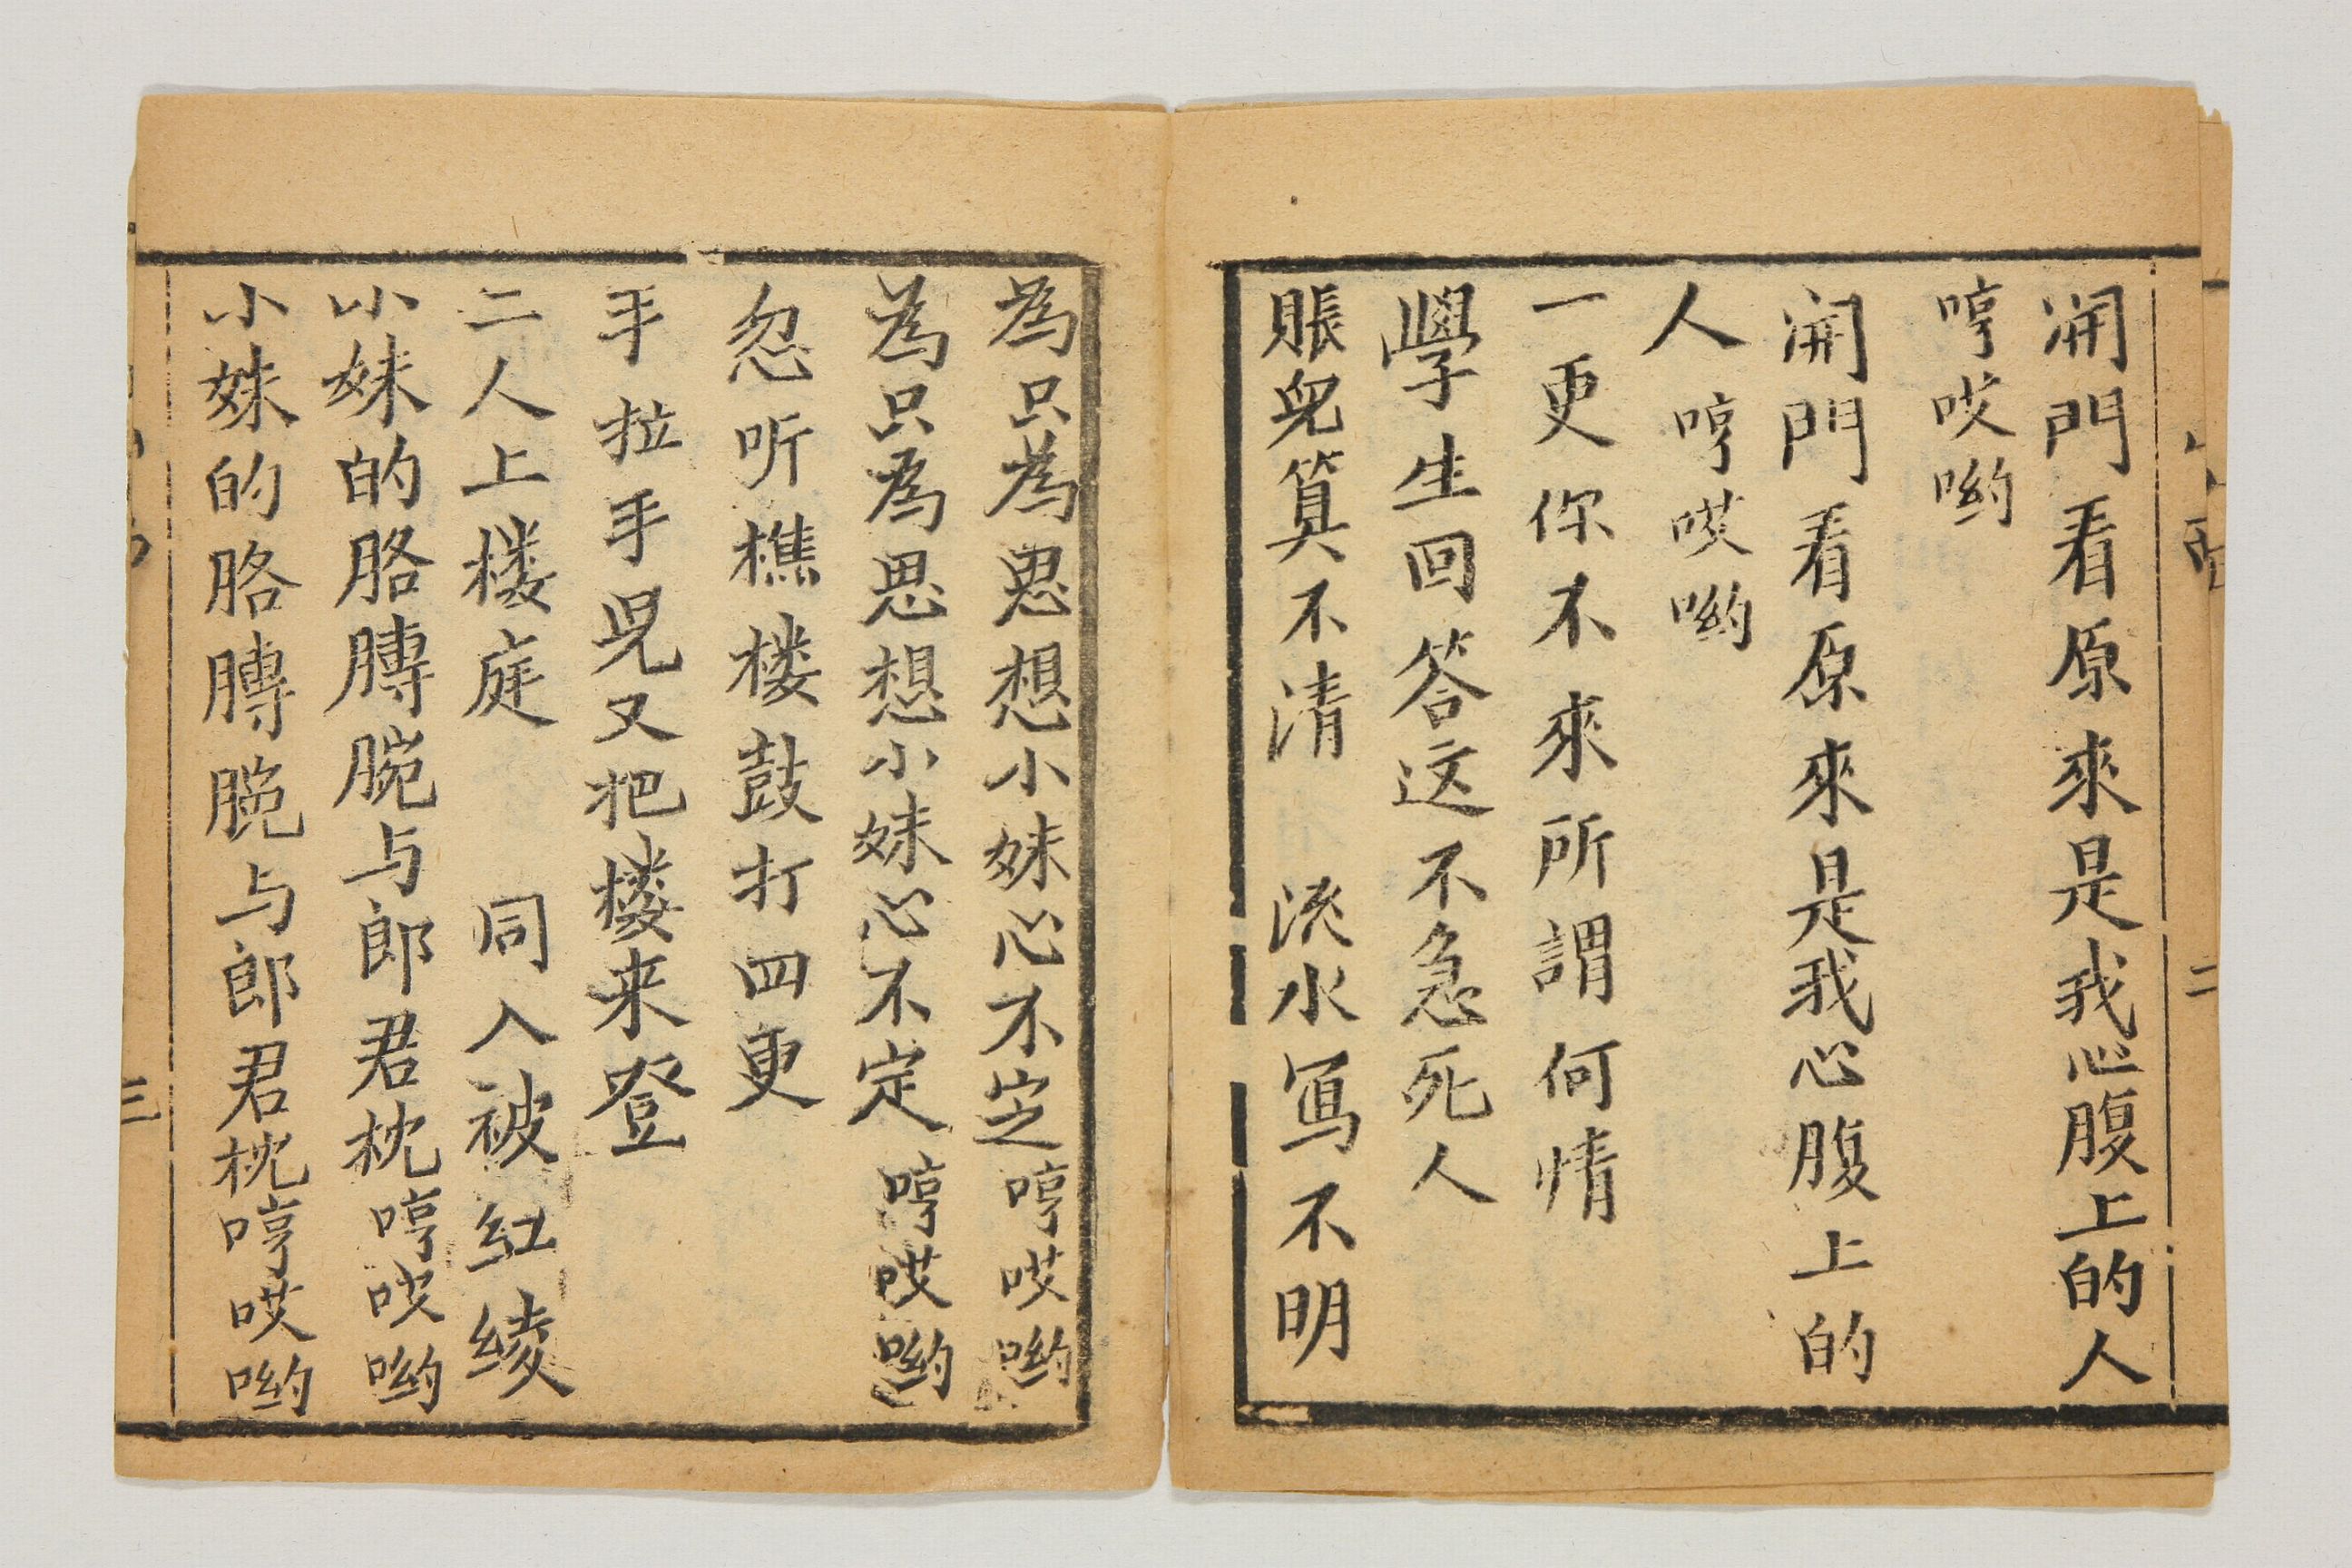 開門看原來是我心腹上的人
哼哎喲
開門看原來是我心腹上的
人哼哎喲
一更你不來所謂何情
學生回答这不急死人
賬兒筭不清 流水写不明
二
為只為思想小妹心不定哼哎喲
為只為思想小妹心不定哼哎喲
忽听樵楼鼓打四更
手拉手兒又把楼来登
二人上楼庭 同入被红绫
小妹的胳膊腕与郎君枕哼哎喲
小妹的胳膊腕与郎君枕哼哎喲
三